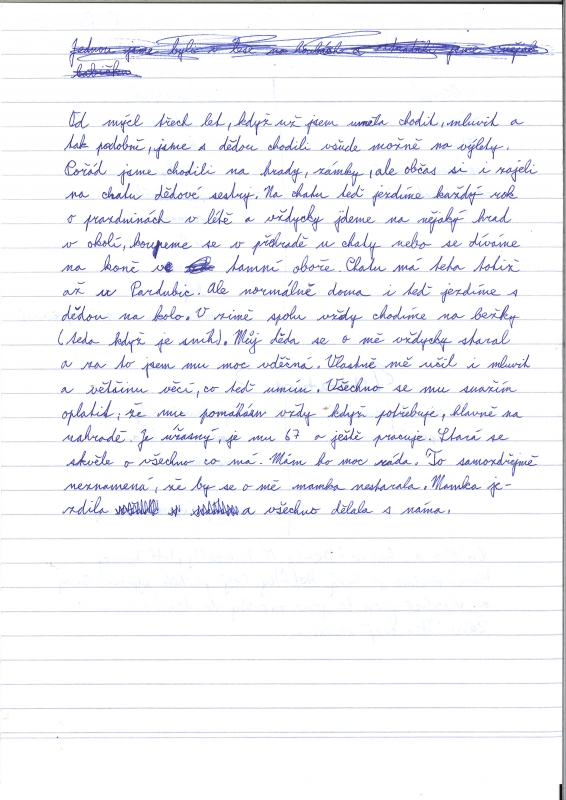 Jednou jsme byli v lese na houbách a jsme
babičku
Od mých třech let, když už jsem uměla chodit, mluvit a
tak podobně, jsme s dědou chodili všude možně na výlety.
Pořád jsme chodili na hrady, zámky, ale občas si i zajeli
na chatu dědové sestry. Na chatu teď jezdíme každý rok
o prazdninách v létě a vždycky jdeme na nějaký hrad
v okolí, koupeme se v přehradě u chaty nebo se díváme
na koně v tamní oboře. Chatu má teta totiž
až u Pardubic. Ale normálně doma i teď jezdíme s
dědou na kolo. V zimě spolu vždy chodíme na bežky
(teda když je sníh). Můj děda se o mě vždycky staral
a za to jsem mu moc vděčná. Vlastně mě učil i mluvit
a většinu věcí, co teď umím. Všechno se mu snažím
oplatit; že mu pomáhám vždy když potřebuje, hlavně na
zahradě. Je úžasný, je mu 67 a ještě pracuje. Stará se
skvěle o všechno co má. Mám ho moc ráda. To samozdřejmě
neznamená, že by se o mě mamka nestarala. Mamka je-
zdila a všechno dělala s náma.